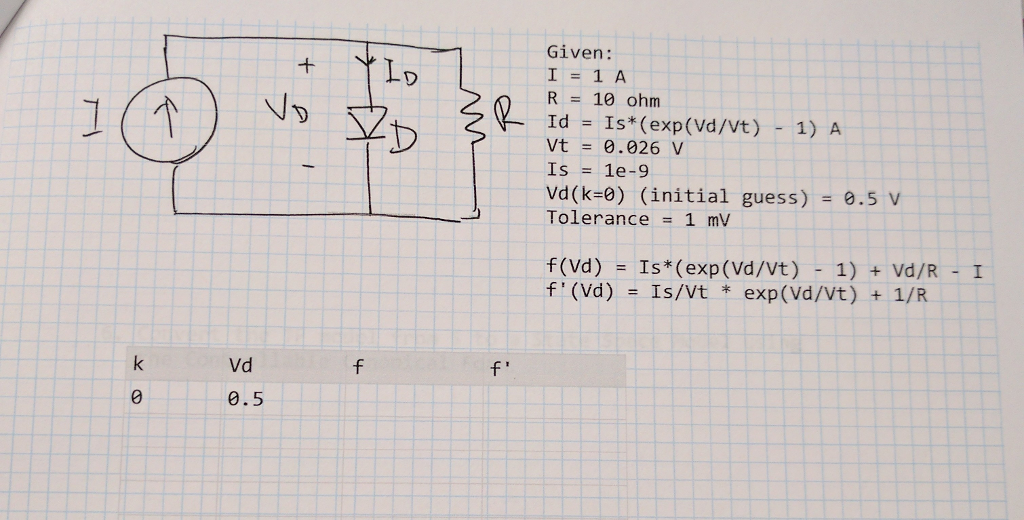 I
+
V_D
-
I_D
D
R
Given:
I = 1 A
R = 10 ohm
Id = Is*(exp(Vd/Vt) - 1) A
Vt = 0.026 V
Is = 1e-9
Vd(k=0) (initial guess) = 0.5 V
Tolerance = 1 mV
f(Vd) = Is*(exp(Vd/Vt) - 1) + Vd/R - I
f'(Vd) = Is/Vt * exp(Vd/Vt) + 1/R
k Vd f f'
0 0.5